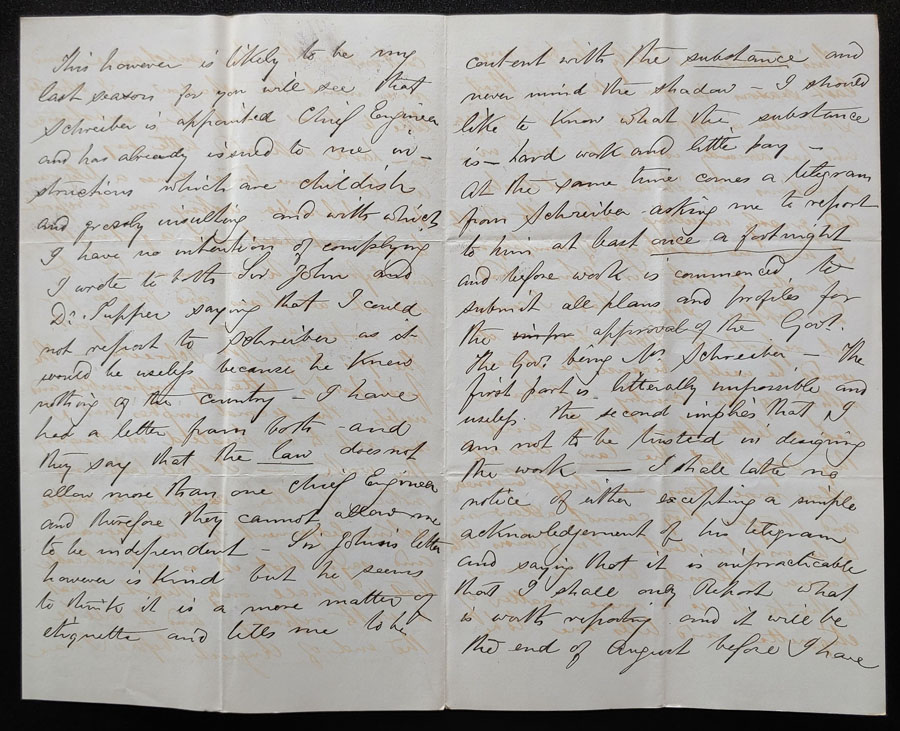 This however is likely to be my
last season for you will see that
Schreiber is appointed Chief Engineer
and has already issued to me in-
structions which are childish
and grossly insulting and with which
I have no intention of complying
I wrote to both Sir John and
Dr. Tupper saying that I could
not report to Schreiber as it
would be useless because he knew
nothing of the country - I have
had a letter from both - and
they say that the law does not
allow more than one Chief Engineer
and therefore they cannot allow me
to be independent - Sir John's letter
however is kind but he seems
to think it is a mere matter of
etiquette and tells me to be
content with the substance and
never mind the shadow - I should
like to know what the substance
is - hard work and little pay -
At the same time comes a telegram
from Schreiber asking me to report
to him at least once a fortnight
and before work is commenced to
submit all plans and profiles for
the approval of the Govt.
The Govt being Mr Schreiber - The
first part is litterally impossible and
useless. The second implies that I
am not to be trusted in designing
the work - I shall take no
notice of either excepting a simple
acknowledgement of his telegram
and saying that it is impracticable
that I shall only Report what
is worth reporting and it will be
the end of August before I have